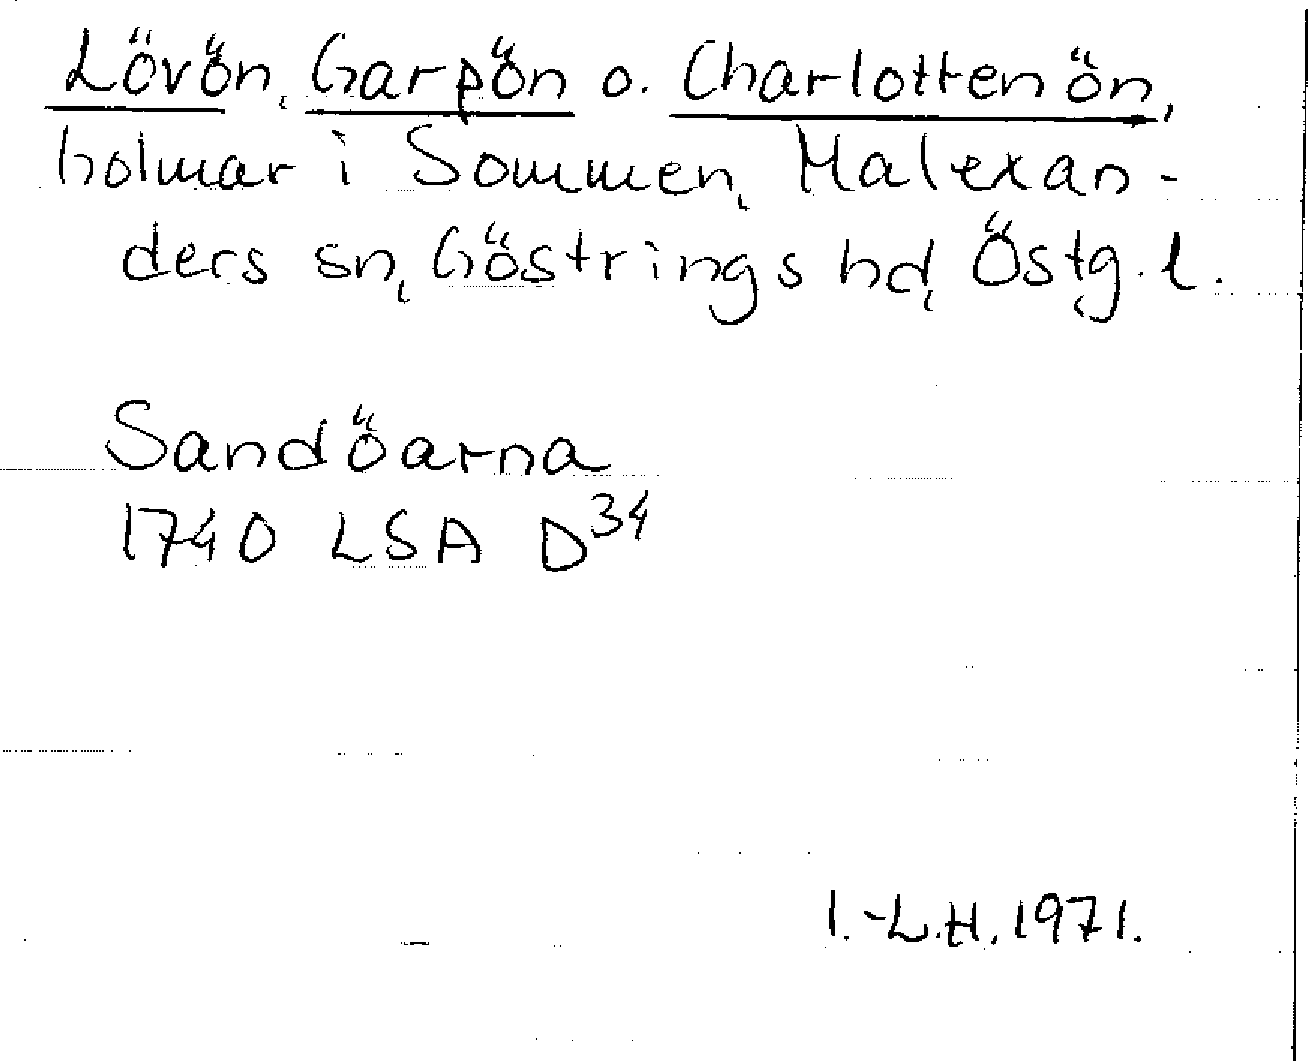 Lövön, Garpön o. Charlottenön,
holmar i Sommen, Malexan-
ders sn, Göstrings hd, Östg. l.
Sandöarna
1740 LSA D34
I.-L.H. 1971.